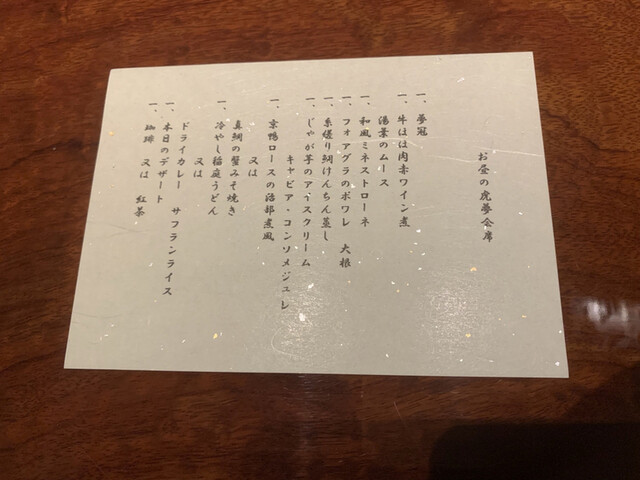 お昼の虎夢会席
一、夢冠
一、牛ほほ肉赤ワイン煮
湯葉のムース
一、和風ミネストローネ
一、フォアグラのポワレ 大根
一、糸縒り鯛けんちん蒸し
一、じゃが芋のアイスクリーム
キャビア・コンソメジュレ
一、京鴨ロースの治部煮風
又は
真鯛の蟹みそ焼き
一、冷やし稲庭うどん
又は
ドライカレー サフランライス
一、本日のデザート
一、珈琲 又は 紅茶